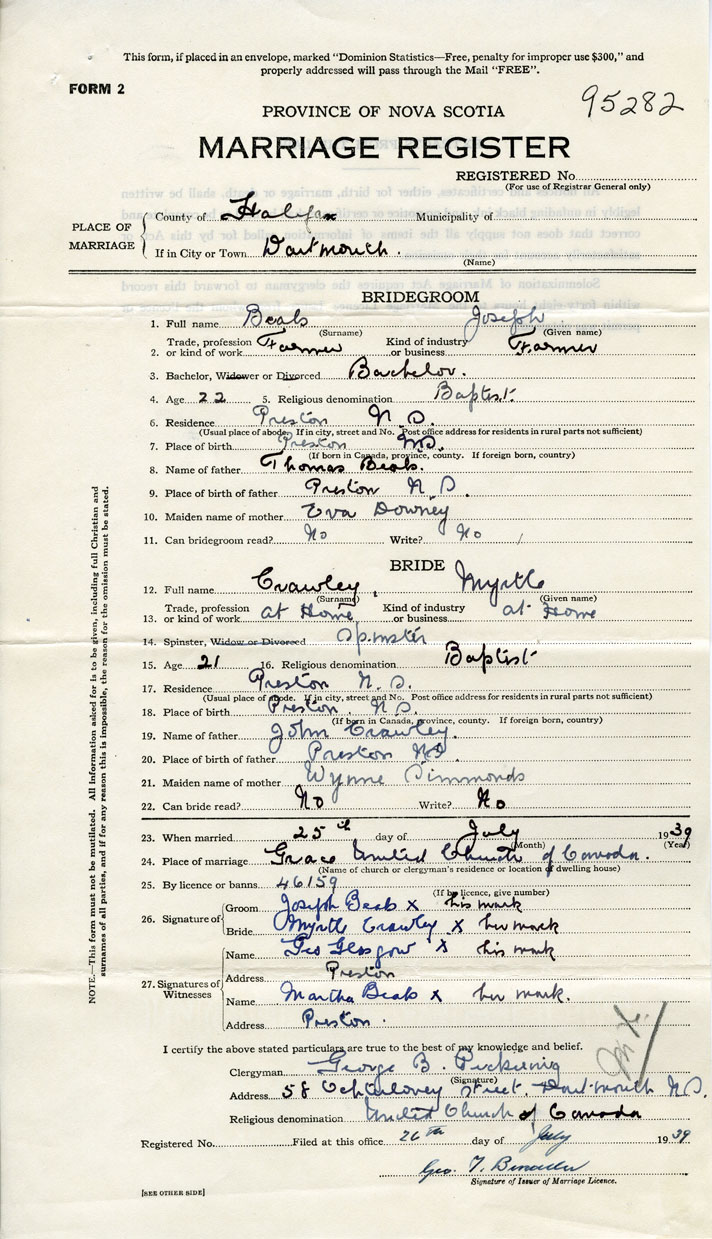 This form, if placed in an envelope, marked "Dominion Statistics—Free, penalty for improper use $300," and
properly addressed will pass through the Mail "FREE".
FORM 2
95282
PROVINCE OF NOVA SCOTIA
MARRIAGE REGISTER
REGISTERED No.
(For use of Registrar General only)
PLACE OF MARRIAGE
County of Halifax Municipality of
If in City or Town Dartmouth.
(Name)
BRIDEGROOM
1. Full name Beals Joseph
(Surname) (Given name)
2. Trade, profession or kind of work Farmer Kind of industry or business Farmer
3. Bachelor, Widower or Divorced Bachelor.
4. Age 22 5. Religious denomination Baptist.
6. Residence Preston N.S.
(Usual place of abode. If in city, street and No. Post office address for residents in rural parts not sufficient)
7. Place of birth Preston N.S.
(If born in Canada, province, county. If foreign born, country)
8. Name of father Thomas Beals.
9. Place of birth of father Preston N.S.
10. Maiden name of mother Eva Downey
11. Can bridegroom read? No Write? No
BRIDE
12. Full name Crawley, Myrtle
(Surname) (Given name)
13. Trade, profession or kind of work at Home Kind of industry or business at Home
14. Spinster, Widow or Divorced Spinster
15. Age 21 16. Religious denomination Baptist
17. Residence Preston N.S.
(Usual place of abode. If in city, street and No. Post office address for residents in rural parts not sufficient)
18. Place of birth Preston. N.S.
(If born in Canada, province, county. If foreign born, country)
19. Name of father John Crawley.
20. Place of birth of father Preston NS.
21. Maiden name of mother Wynne Simmonds
22. Can bride read? No Write? No
23. When married 25th day of July 1939
(Month) (Year)
24. Place of marriage Grace United Church of Canada.
(Name of church or clergyman's residence or location of dwelling house)
25. By licence or banns 46159
(If by licence, give number)
26. Signature of
Groom Joseph Beals x his mark
Bride Myrtle Crawley x her mark
27. Signatures of Witnesses
Name Geo Glasgow x his mark
Address Preston
Name Martha Beals x her mark.
Address Preston.
I certify the above stated particulars are true to the best of my knowledge and belief.
Clergyman George B. Pickering
(Signature)
Address 58 Ochterloney Street, Dartmouth N.S.
Religious denomination United Church of Canada
Registered No. Filed at this office 26th day of July 1939
Geo. T.
Signature of Issuer of Marriage Licence.
[SEE OTHER SIDE]
NOTE.—This form must not be mutilated. All information asked for is to be given, including full Christian and
surnames of all parties, and if for any reason this is impossible, the reason for the omission must be stated.